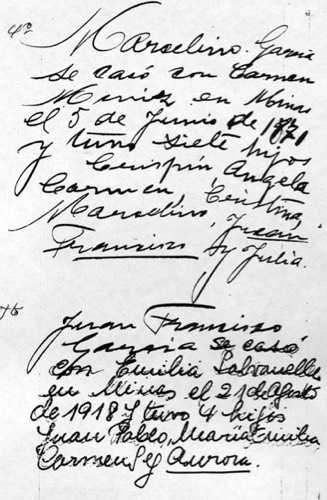 4º Marcelino Garcia
se casó con Carmen
Muniz en Minas
el 5 de Junio de 1871
y tuvo siete hijos
Crispin, Angela
Carmen Cristina,
Marcelino, Juan
Francisco y Julia.
Juan Francisco
Garcia se casó
con Emilia
en Minas el 21 de Agosto
de 1918 y tuvo 4 hijos
Juan Pablo, Maria Emilia
Carmen y Aurora.